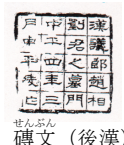 漢議郎趙相
劉君之墓門
中平四年三
月東平
せんぶん
磚文（後漢）